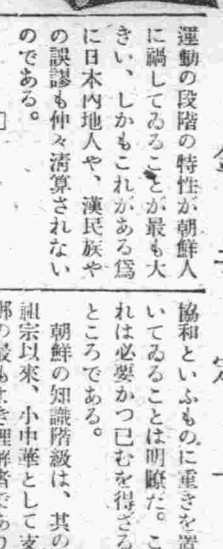 運動の段階の特性が朝鮮人
に禍してゐることが最も大
きい、しかもこれがある爲
に日本內地人や、漢民族や
の誤謬も仲々清算されない
のである。
協和といふものに重きを置
いてゐることは明瞭だ。こ
れは必要かつ已むを得ざる
ところである。
朝鮮の知識階級は、其の
祖宗以來、小中華として支
邦の最もよき理解者であり